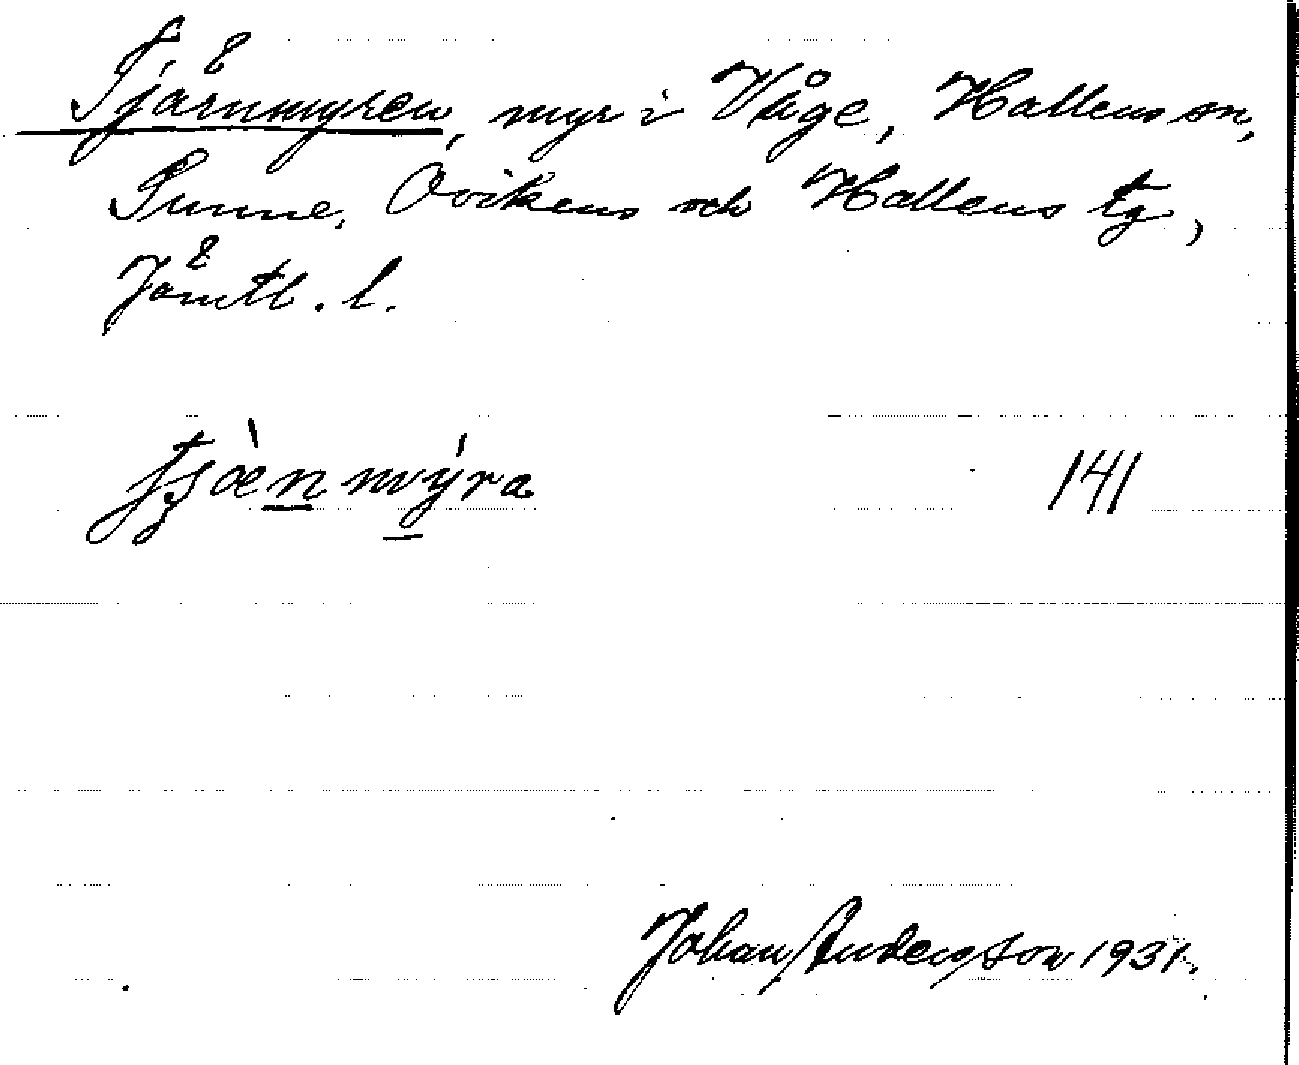 Tjärnmyren, myr i Våge, Hallens sn,
Sunne, Ovikens och Hallens tg,
Jämtl. l.
mýra 141
Johan Andersson 1931.